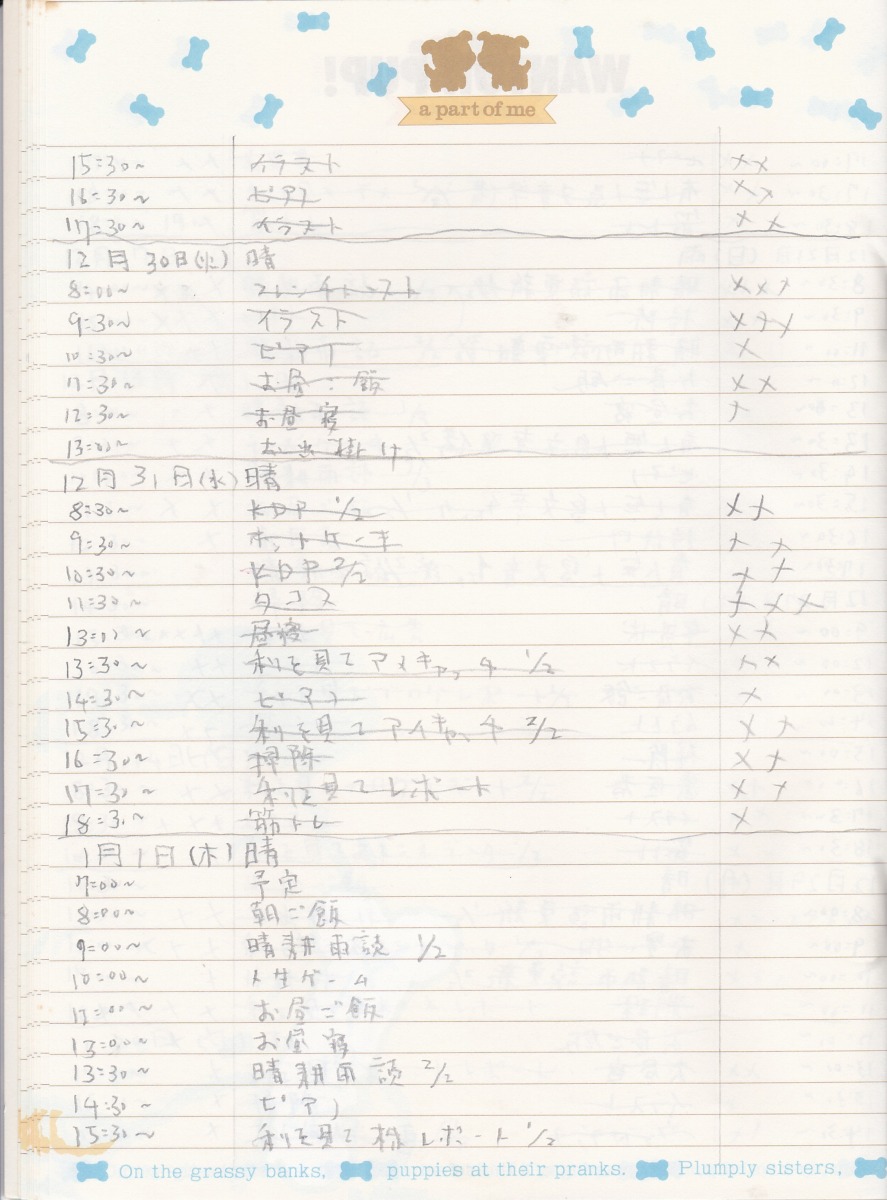 a part of me
15:30~ イラスト ××
16:30~ ピアノ ××
17:30~ イラスト ××
12月30日(火) 晴
8:00~ フレンチトースト ×××
9:30~ イラスト ×××
10:30~ ピアノ ×
11:30~ お昼ご飯 ××
12:30~ お昼寝 ×
13:00~ お出掛け
12月31日(水) 晴
8:30~ KDP 1/2 ××
9:30~ ホットケーキ ××
10:30~ KDP 2/2 ××
11:30~ タコス ×××
13:00~ 昼寝 ××
13:30~ 利を見てアイキャッチ 1/2 ××
14:30~ ピアノ ×
15:30~ 利を見てアイキャッチ 2/2 ××
16:30~ 掃除 ××
17:30~ 利を見てレポート ××
18:30~ 筋トレ ×
1月1日(木) 晴
7:00~ 予定
8:00~ 朝ご飯
9:00~ 晴耕雨読 1/2
10:00~ 人生ゲーム
12:00~ お昼ご飯
13:00~ お昼寝
13:30~ 晴耕雨読 2/2
14:30~ ピアノ
15:30~ 利を見て株レポート 1/2
On the grassy banks, puppies at their pranks. Plumply sisters,